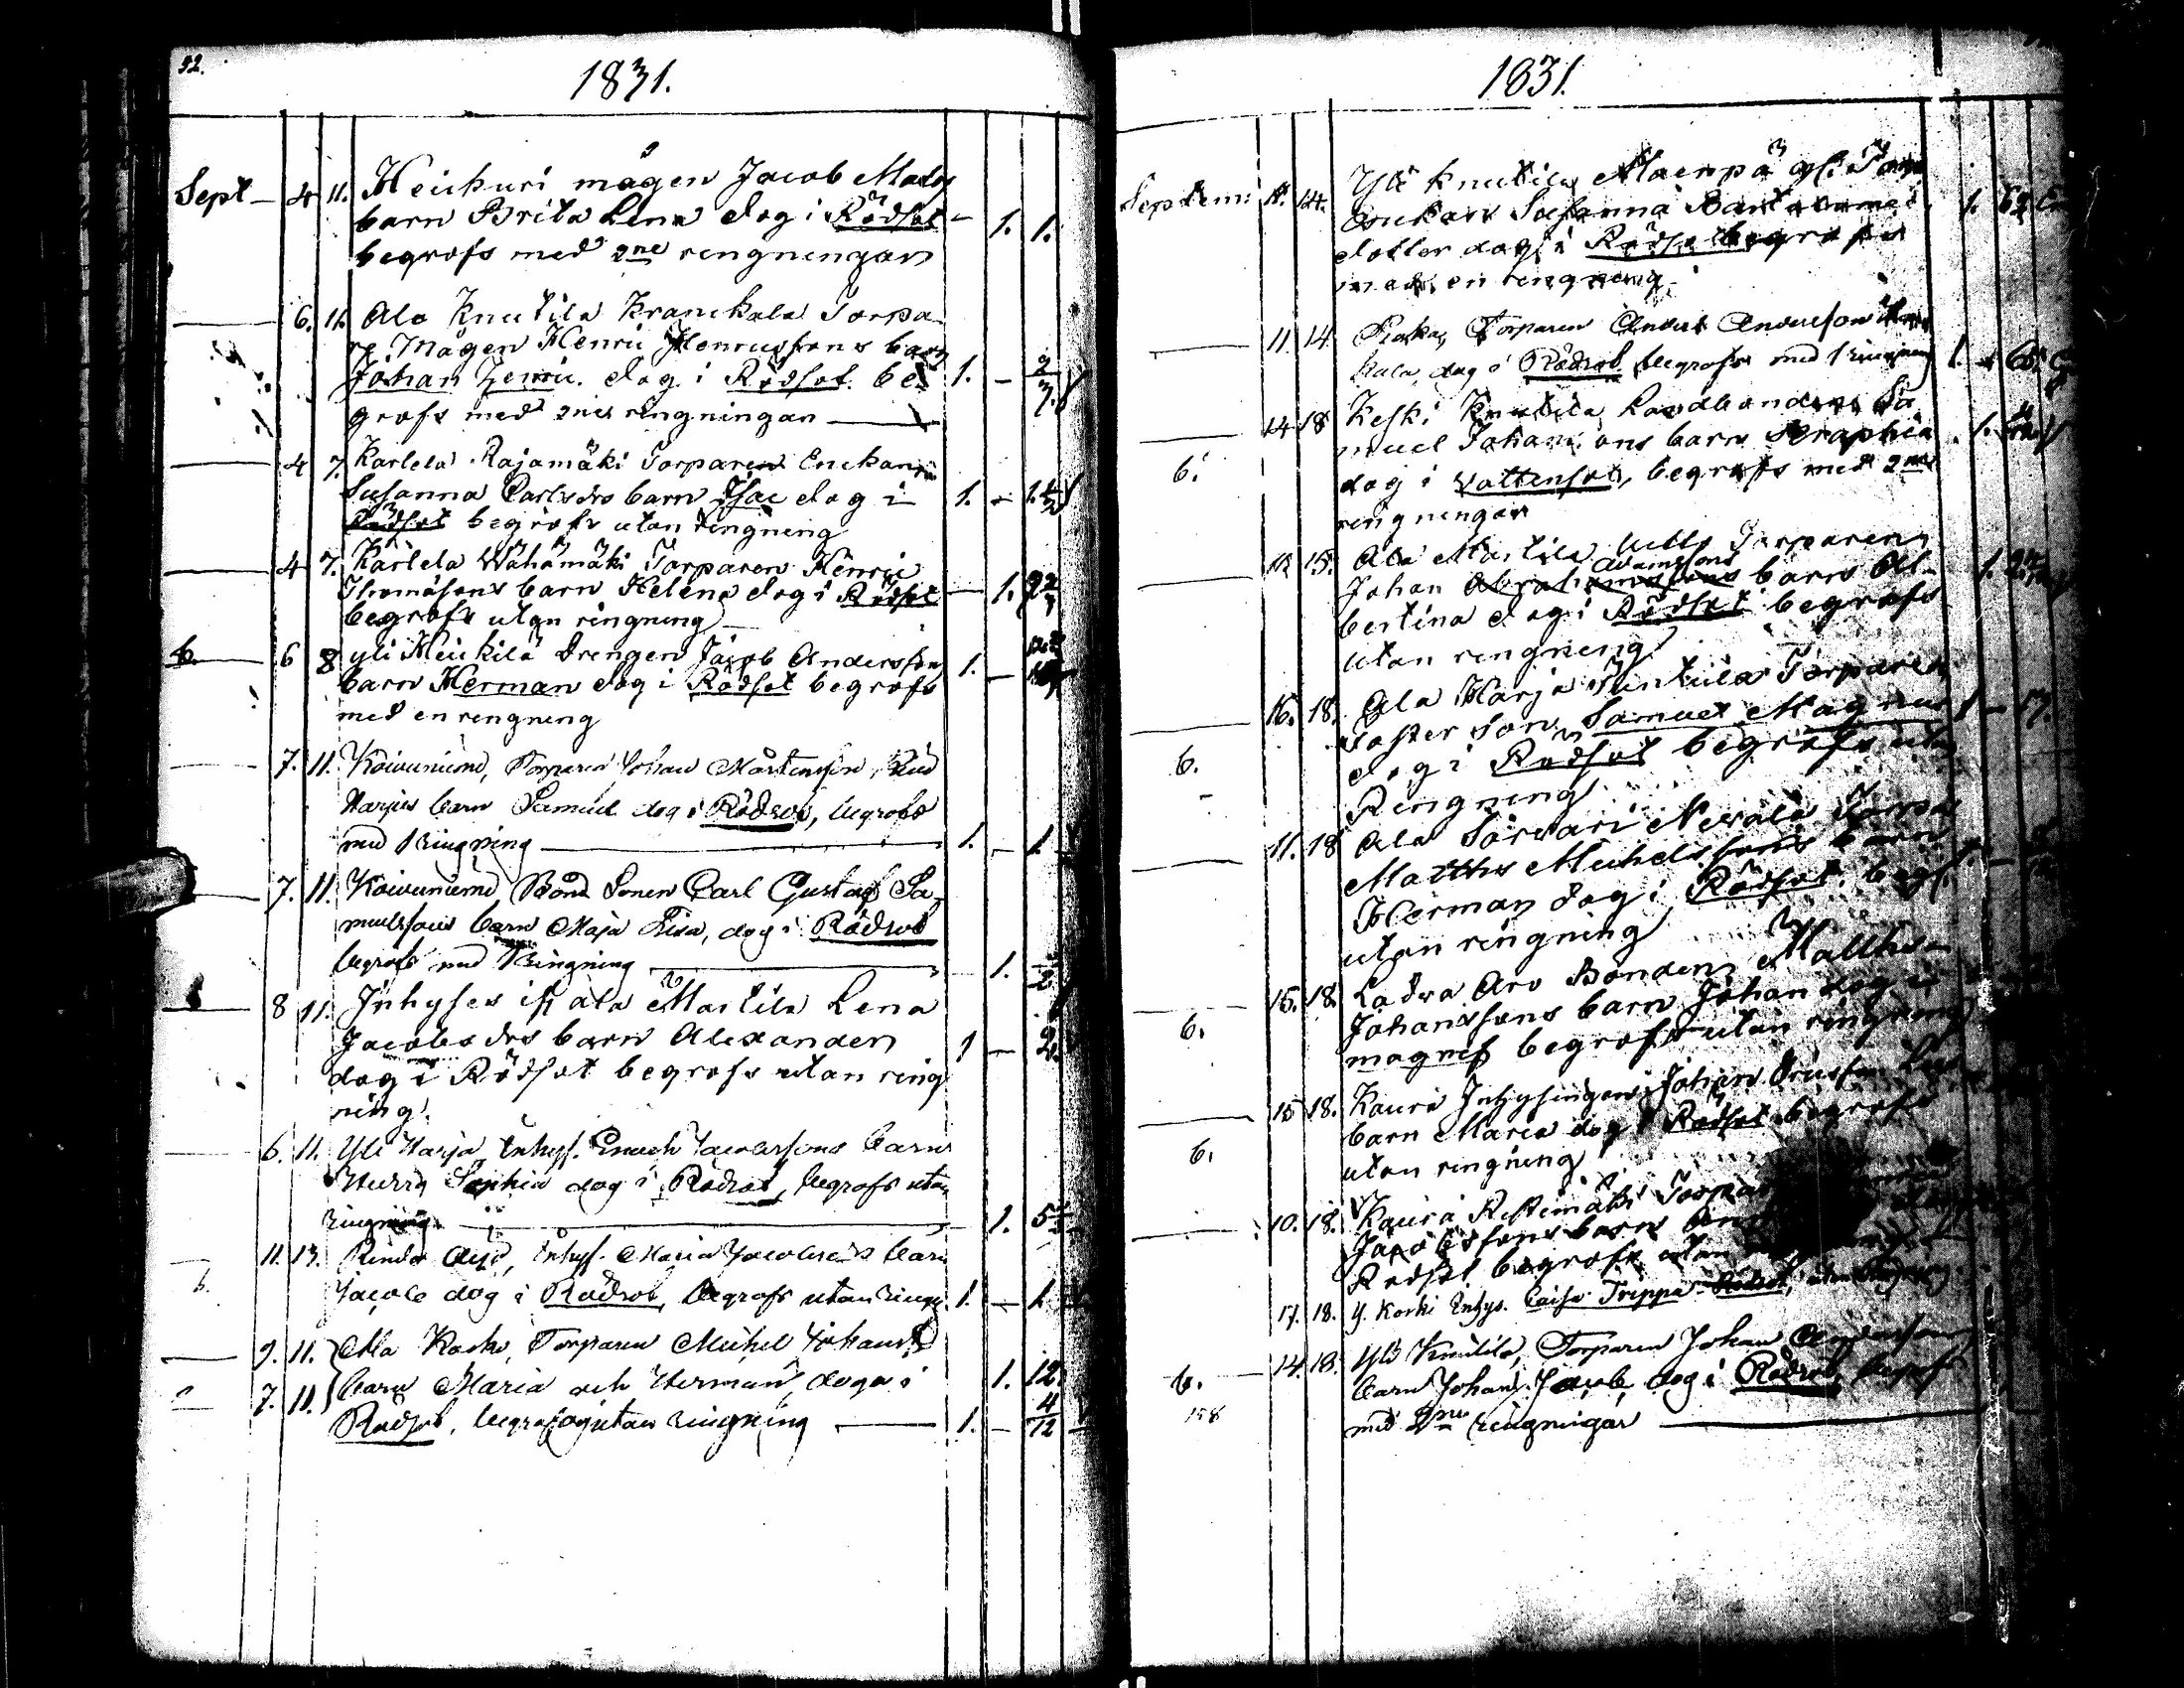 32.
1831.
Sept - 4 11. Heickuri mågen Jacob Mats
barn Brita Lena dog i Rödsot - 1. 1.
begrofs med 2ne ringningar
6. 11. Ala Knutila Kranckala Torpa
re Mågen Henric Henricssons barn
Johan Henric dog i Rödsot be 1. -
grofs med 2ne ringningar
4 7. Karlela Rajamäki Torpare Enckans
Susanna Carlsdrs barn Isac dog i 1. -
Rödsot begrofs utan ringning
4 7. Karlela Wähämäki Torparen Henric
Thomassons barn Helena dog i Rödsot 1.
begrofs utan ringning
6 8 yli Heickilä Drengen Jacob Andersson
barn Herman dog i Rödsot begrofs 1. -
med en ringning
7. 11. Koivuniemi, Torparen Johan Mårtensson
Harjus barn Samuel dog i Rödsot, begrofs
med 1 ringning 1. - 1
7. 11. Koivuniemi Bond Sonen Carl Gustaf Sa-
muelssons barn Maja Lisa, dog i Rödsot
begrofs med 1 Ringning 1.
8 11. Inhyses ifr ala Martila Lena
Jacobs drs barn Alexander 1 - 2
dog i Rödsot begrofs utan ring
ning.
6. 11. Yli Harja Inhys. Enoch Jacobssons barn
Sophia dog i Rödsot, begrofs utan
ringning 1. 5
11. 13. Äijö, Inhys. Maria Jacobsdrs barn
b. Jacob dog i Rödsot, begrofs utan ringn. 1. - 1
9. 11. Ala Koski, Torparen Michel Johanss
7. 11. barn Maria och Herman, dogo i 1. 12.
Rödsot, begrofs utan ringning 1. - 4/12
1831.
Septem: 11. 14. Yli Knutila Maenpä Torp
enckan Susanna 1.
dotter dog i Rödsot begrofs
med en ringning
11. 14. Torparen Anders Andersson
kala, dog i Rödsot, begrofs med 1 ringning 1. - 65
14 18 Keski Knutila Landbonden Sa
6. muel Johanssons barn Seraphia 1.
dog i Vattensot, begrofs med 2ne
ringningar
12 15. Ala Martila Torparen
Adamssons
Johan Abrahamssons barn Al- 1.
bertina dog i Rödsot begrofs
utan ringning
16. 18. Ala Harja Junkila Torparen
Foster son Samuel Magnus 1 - 17.
6. dog i Rödsot begrofs utan
Ringning
11. 18 Ala Sorvari Nevala Torpa
Matths Michelssons barn 1. -
Herman dog i Rödsot. begr.
utan ringning
15. 18. Ladva Aro Bonden Matths
6. Johanssons barn Johan dog i
magref begrofs utan ringning
15 18. Kaura Inhysingen Johan
barn Maria dog i Rödsot begrofs
6. utan ringning
10. 18. Kaura Ristimäki Torpar
Jacobssons barn
Rödsot begrofs utan
17. 18. Y. Koski Inhys. Caisa Trippa Rödsot, utan
14. 18. Yli Knutila, Torparen Johan Andersson
6. barn Johan Jacob dog i Rödsot, begrofs
158 med 2ne ringningar